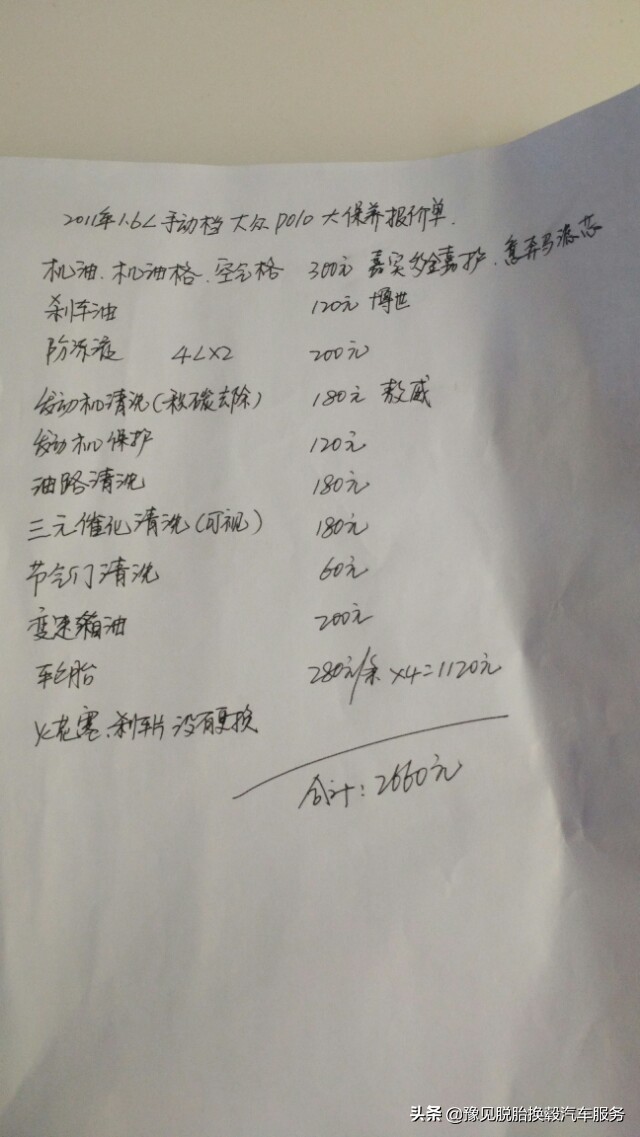 2011年1.6L手动档 大众polo 大保养报价单.
机油.机油格.空气格 300元 嘉实多金嘉护.意弄马滤芯
刹车油 120元 博世
防冻液 4L×2 200元
发动机清洗(积碳去除) 180元 敖威
发动机保护 120元
油路清洗 180元
三元催化清洗(可视) 180元
节气门清洗 60元
变速箱油 200元
车轮胎 280元/条 ×4=1120元
火花塞.刹车片没有更换
合计:2660元
头条 @豫见脱胎换毂汽车服务